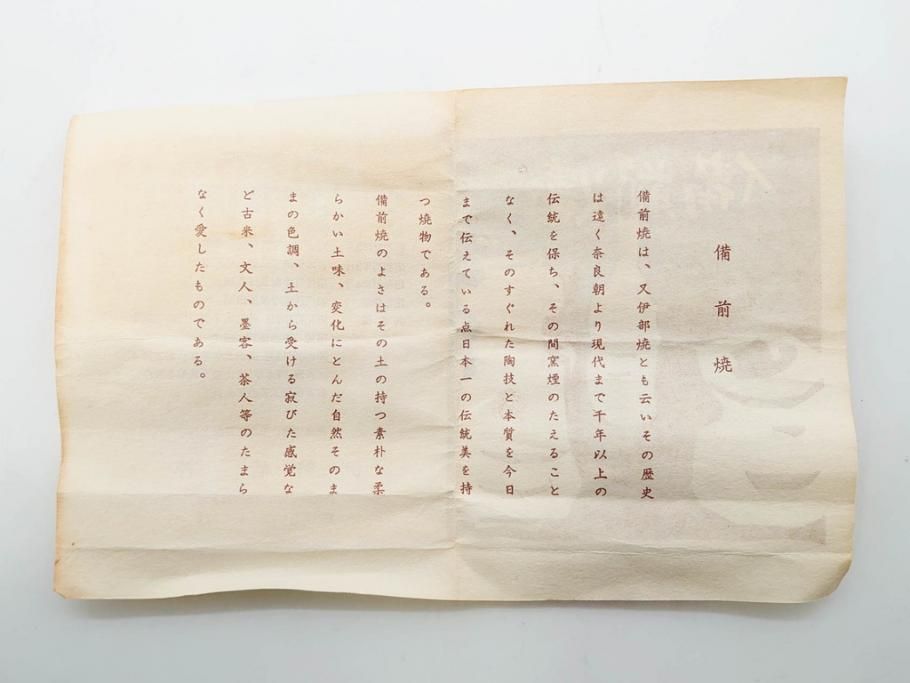 備前焼
備前焼は、又伊部焼とも云いその歴史
は遠く奈良朝より現代まで千年以上の
伝統を保ち、その間窯煙のたえること
なく、そのすぐれた陶技と本質を今日
まで伝えている点日本一の伝統美を持
つ焼物である。
備前焼のよさはその土の持つ素朴な柔
らかい土味、変化にとんだ自然そのま
まの色調、土から受ける寂びた感覚な
ど古来、文人、墨客、茶人等のたまら
なく愛したものである。